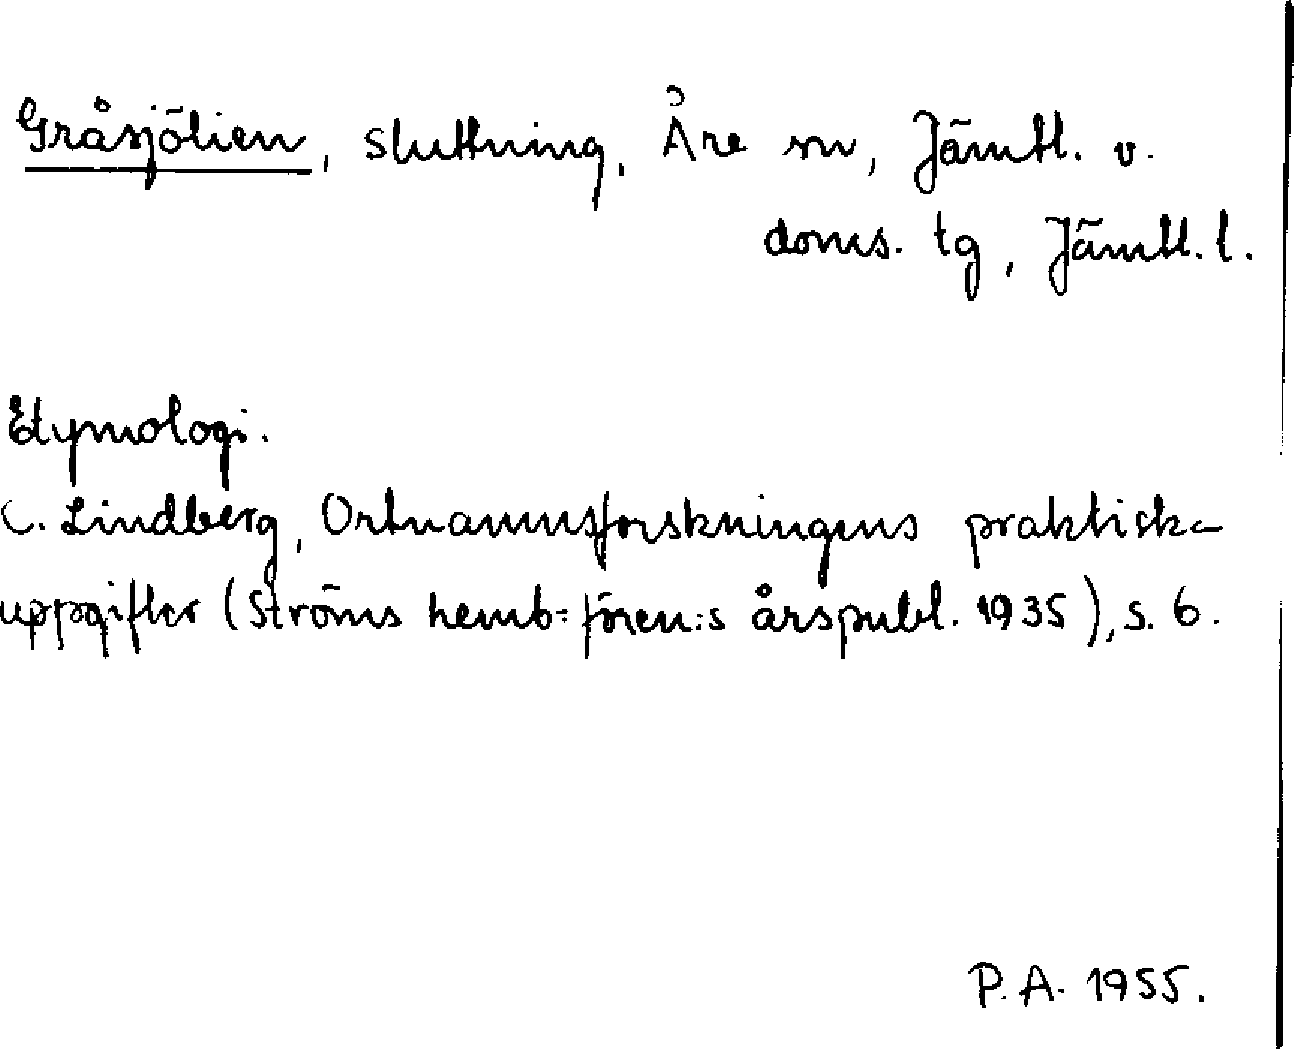 Gråsjölien, sluttning, Åre sn, Jämtl. v.
doms. tg, Jämtl. l.
Etymologi.
C. Lindberg, Ortnamnsforskningens praktiska
uppgifter (Ströms hemb:fören:s årspubl. 1935), s. 6.
P. A. 1955.